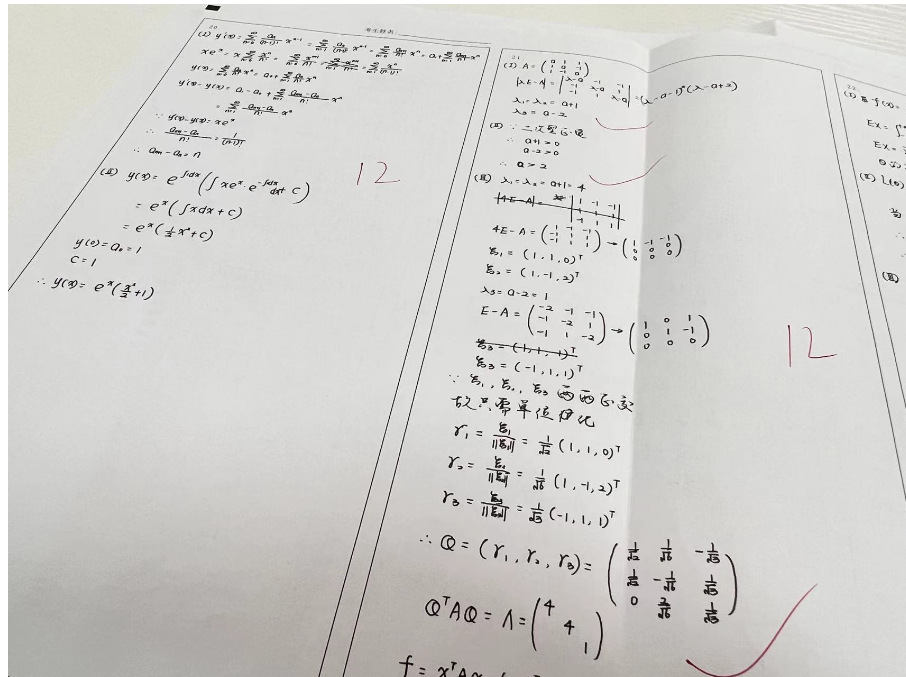 考生姓名
20.
(I) y'(x) = ∑ aₙ/(n-1)! xⁿ⁻¹ = ∑ aₙ/(n-1)! xⁿ⁻¹ = ∑ aₙ₊₁/n! xⁿ = a₁ + ∑ aₙ₊₁/n! xⁿ
xeˣ = x ∑ xⁿ/n! = ∑ xⁿ⁺¹/n! = ∑ xⁿ/(n-1)!
y(x) = ∑ aₙ/n! xⁿ = a₀ + ∑ aₙ/n! xⁿ
y'(x) - y(x) = a₁ - a₀ + ∑ (aₙ₊₁ - aₙ)/n! xⁿ
= ∑ (aₙ₊₁ - aₙ)/n! xⁿ
∵ y'(x) - y(x) = xeˣ
∴ (aₙ₊₁ - aₙ)/n! = 1/(n-1)!
∴ aₙ₊₁ - aₙ = n
(II) y(x) = e^∫dx (∫xeˣ · e^-∫dx dx + C)
= eˣ(∫xdx + C)
= eˣ(½x² + C)
y(0) = a₀ = 1
C = 1
∴ y(x) = eˣ(x²/2 + 1)
12
21.
(I) A = (a 1 1; 1 a -1; 1 -1 a)
|λE-A| = |λ-a -1 -1; -1 λ-a 1; -1 1 λ-a| = (λ-a-1)²(λ-a+2)
λ₁ = λ₂ = a+1
λ₃ = a-2
(II) ∵ 二次型正定
∴ a+1>0
a-2>0
∴ a>2
(III) λ₁ = λ₂ = a+1 = 4
|4E-A| = |1 -1 -1; -1 1 1; -1 1 1|
4E-A = (1 -1 -1; -1 1 1; -1 1 1) → (1 -1 -1; 0 0 0; 0 0 0)
ξ₁ = (1, 1, 0)ᵀ
ξ₂ = (1, -1, 2)ᵀ
λ₃ = a-2 = 1
E-A = (-2 -1 -1; -1 -2 1; -1 1 -2) → (1 0 1; 0 1 -1; 0 0 0)
ξ₃ = (1, 1, 1)ᵀ
ξ₃ = (-1, 1, 1)ᵀ
∵ ξ₁, ξ₂, ξ₃ 两两正交
故只需单位化
γ₁ = ξ₁/||ξ₁|| = 1/√2 (1, 1, 0)ᵀ
γ₂ = ξ₂/||ξ₂|| = 1/√6 (1, -1, 2)ᵀ
γ₃ = ξ₃/||ξ₃|| = 1/√3 (-1, 1, 1)ᵀ
∴ Q = (γ₁, γ₂, γ₃) = (1/√2 1/√6 -1/√3; 1/√2 -1/√6 1/√3; 0 2/√6 1/√3)
QᵀAQ = Λ = (4 4 1)
f = xᵀAx
12
22.
(I)
EX = ∫
EX =
(II) L(θ)
当
∴
(III)